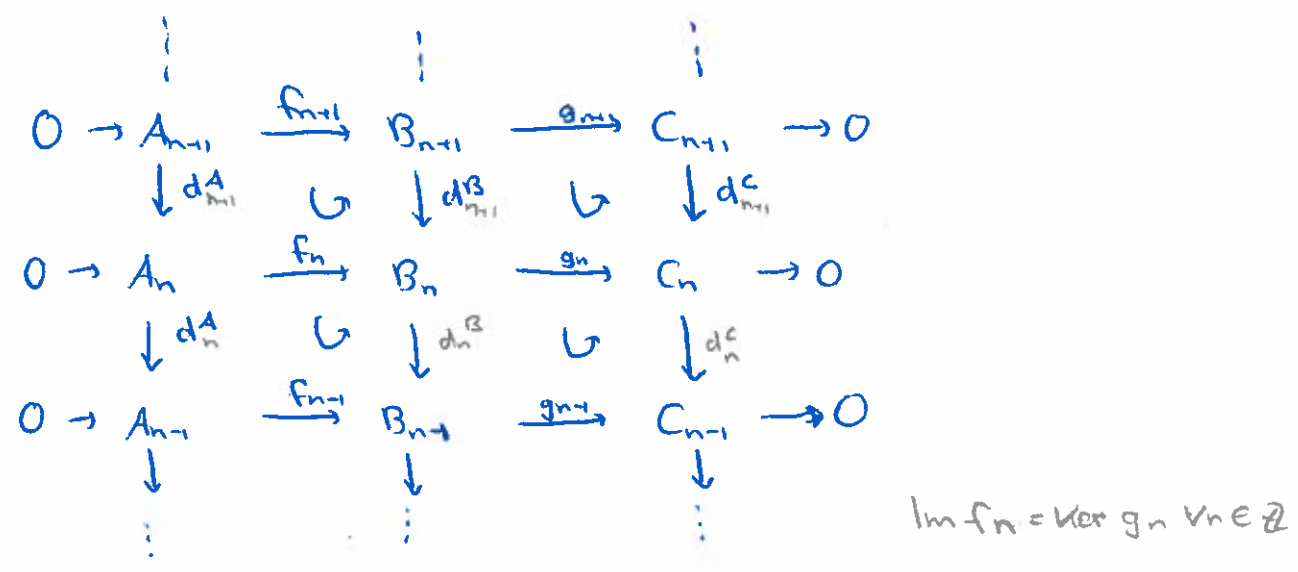 0 → A_{n+1} \xrightarrow{f_{n+1}} B_{n+1} \xrightarrow{g_{n+1}} C_{n+1} → 0
↓ d^A_{n+1} ↓ d^B_{n+1} ↓ d^C_{n+1}
0 → A_n \xrightarrow{f_n} B_n \xrightarrow{g_n} C_n → 0
↓ d^A_n ↓ d^B_n ↓ d^C_n
0 → A_{n-1} \xrightarrow{f_{n-1}} B_{n-1} \xrightarrow{g_{n-1}} C_{n-1} → 0
↓ ↓ ↓
Im f_n = Ker g_n ∀n ∈ ℤ